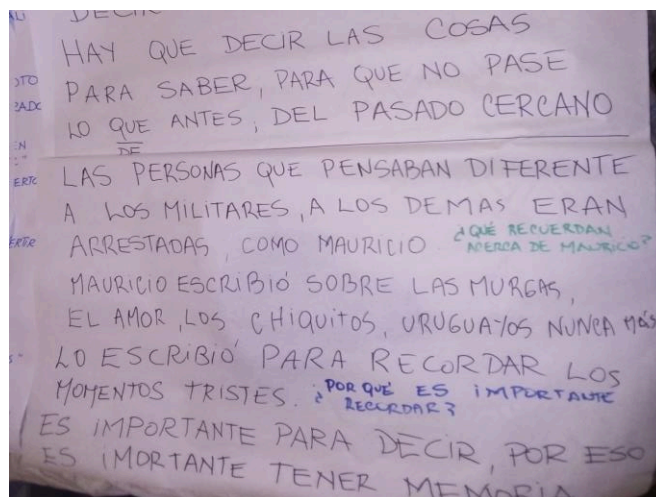 DECIR
HAY QUE DECIR LAS COSAS
PARA SABER, PARA QUE NO PASE
LO QUE ANTES, DEL PASADO CERCANO
DE
LAS PERSONAS QUE PENSABAN DIFERENTE
A LOS MILITARES, A LOS DEMAS ERAN
ARRESTADAS, COMO MAURICIO. ¿QUÉ RECUERDAN
ACERCA DE MAURICIO?
MAURICIO ESCRIBIÓ SOBRE LAS MURGAS,
EL AMOR, LOS CHIQUITOS, URUGUAYOS NUNCA MÁS
LO ESCRIBIÓ PARA RECORDAR LOS
MOMENTOS TRISTES. ¿POR QUÉ ES IMPORTANTE
RECORDAR?
ES IMPORTANTE PARA DECIR, POR ESO
ES IMORTANTE TENER MEMORIA